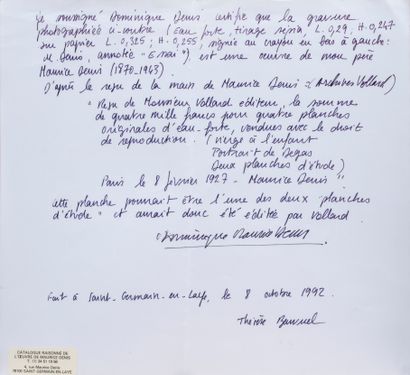 Je soussigné Dominique Denis certifie que la gravure
photographiée ci-contre (Eau forte, tirage sépia, L. 0,29, H. 0,247
sur papier L. 0,325 ; H. 0,255, signée au crayon en bas à gauche :
M. Denis, annotée "Essai"), est une œuvre de mon père
Maurice Denis (1870-1943).
D'après le reçu de la main de Maurice Denis (Archives Vollard)
"Reçu de Monsieur Vollard éditeur, la somme
de quatre mille francs pour quatre planches
originales d'eau-forte, vendues avec le droit
de reproduction. (Vierge à l'enfant
Portrait de Degas
Deux planches d'étude)
Paris le 8 février 1927 - Maurice Denis"
Cette planche pourrait être l'une des deux planches
d'étude" et aurait donc été éditée par Vollard.
Dominique Maurice Denis
Fait à Saint-Germain-en-Laye, le 8 octobre 1992.
Thérèse Barruel
CATALOGUE RAISONNÉ DE
L'ŒUVRE DE MAURICE DENIS
78100 SAINT-GERMAIN-EN-LAYE